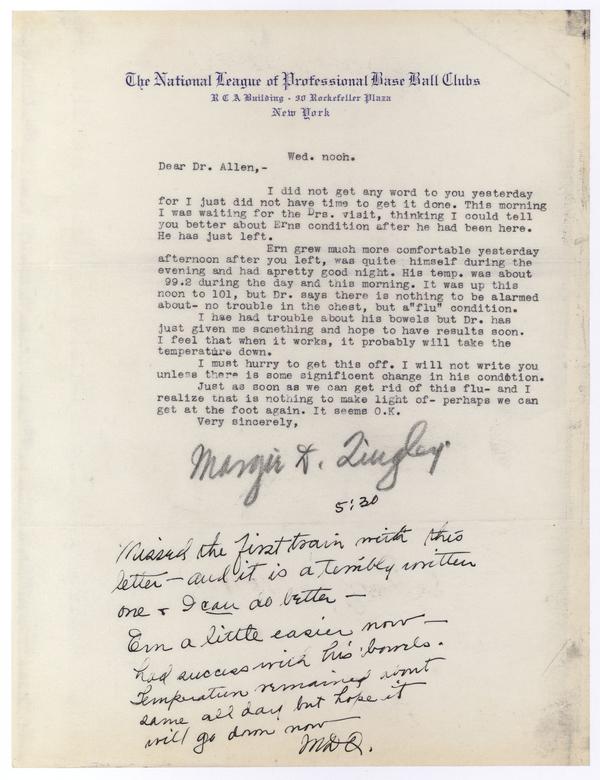 The National League of Professional Base Ball Clubs
R C A Building - 30 Rockefeller Plaza
New York
Wed. nooh.
Dear Dr. Allen,-
I did not get any word to you yesterday
for I just did not have time to get it done. This morning
I was waiting for the Drs. visit, thinking I could tell
you better about Erns condition after he had been here.
He has just left.
Ern grew much more comfortable yesterday
afternoon after you left, was quite himself during the
evening and had apretty good night. His temp. was about
99.2 during the day and this morning. It was up this
noon to 101, but Dr. says there is nothing to be alarmed
about- no trouble in the chest, but a"flu" condition.
I hae had trouble about his bowels but Dr. has
just given me something and hope to have results soon.
I feel that when it works, it probably will take the
temperature down.
I must hurry to get this off. I will not write you
unless there is some significant change in his condition.
Just as soon as we can get rid of this flu- and I
realize that is nothing to make light of- perhaps we can
get at the foot again. It seems O.K.
Very sincerely,
Margie D.
5:30
Missed the first train with this
letter - and it is a terribly written
one & I can do better -
Ern a little easier now -
had success with his bowels.
Temperature remained about
same all day but hope it
will go down now
M D Q.